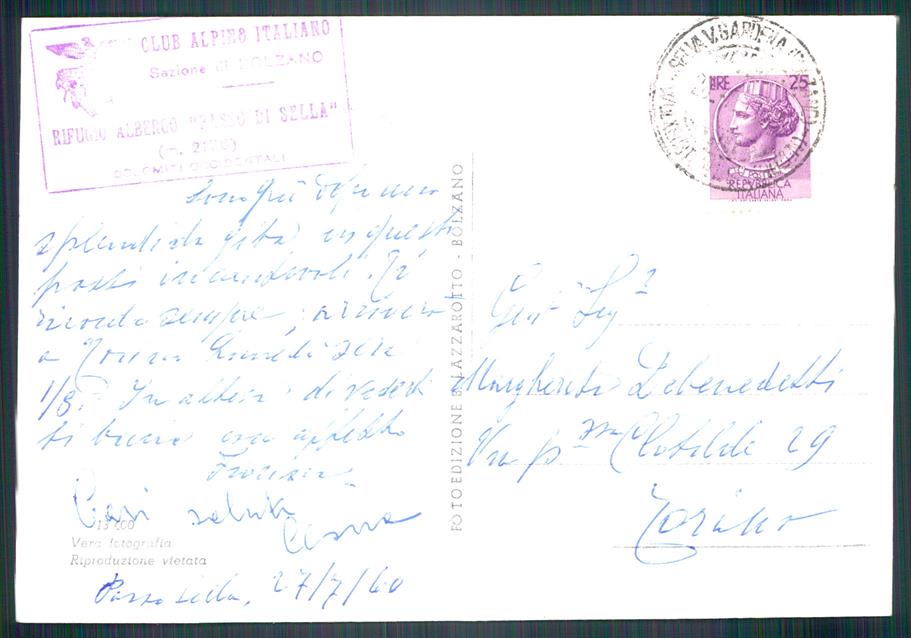 CLUB ALPINO ITALIANO
Sezione di BOLZANO
RIFUGIO ALBERGO "PASSO DI SELLA"
(m. 2176)
DOLOMITI OCCIDENTALI
splendida gita in questi
posti incantevoli. Ti
ricordo sempre, arriverò
a Torino lunedì sera
1/8. In attesa di vederti
ti bacio con affetto
Cari saluti
13 400
Vera fotografia
Riproduzione vietata
Passo Sella, 27/7/60
FOTOEDIZIONE B. LAZZAROTTO - BOLZANO
SELVA V. GARDENA (BOLZANO)
LIRE 25
REPVBBLICA
ITALIANA
Gent. Sig.
Margherita Debenedetti
Via p.ssa Clotilde 29
Torino